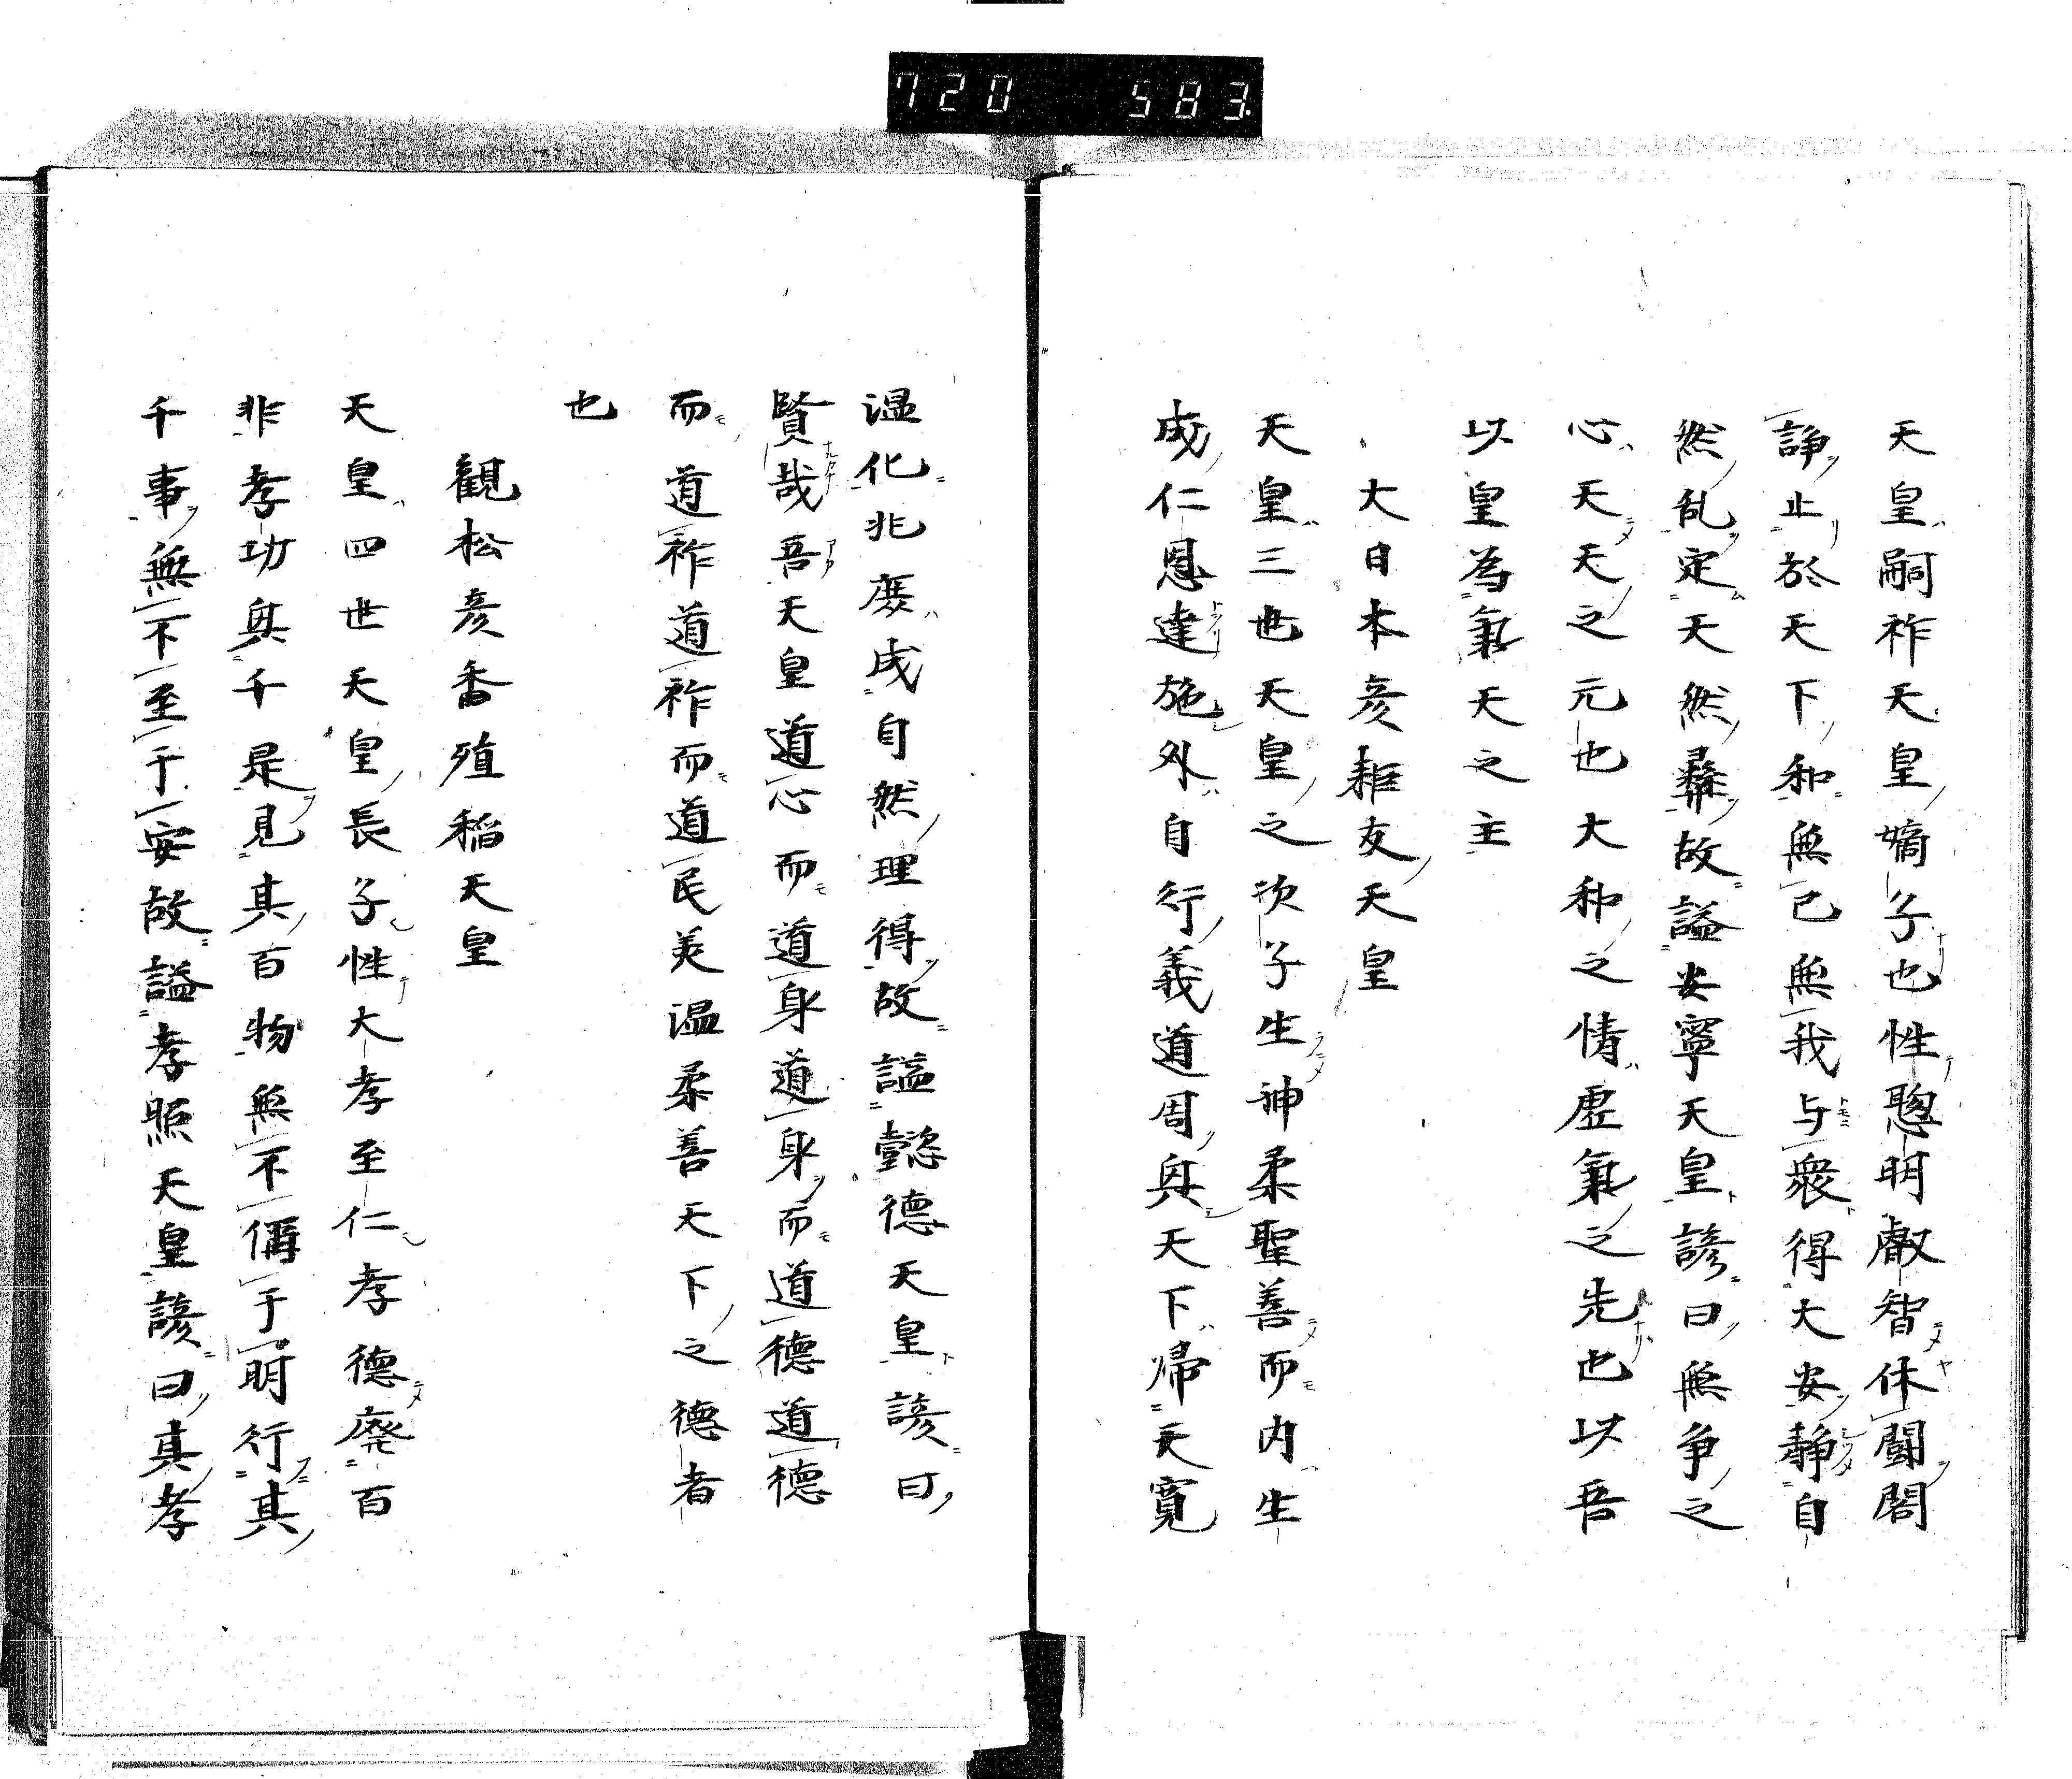 720 583
天皇嗣祚天皇嫡子也性聰明叡智休鬪鬩
諍止於天下和無己無我与衆得大安静自
然乱定天然彜故謚安寧天皇諺曰無争之
心天天之元也大和之情虚氣之先也以吾
以皇為氣天之主
大日本彦耟友天皇
天皇三世天皇之次子生神柔聖善而内生
成仁恩達施外自行義道周與天下帰天寛
温化兆庶成自然理得故謚懿德天皇諺曰
賢哉吾天皇道心而道身道身而道德道德
而道祚道祚而道民美温柔善天下之德者
也
觀松彦香殖稲天皇
天皇四世天皇長子性大孝至仁孝德廃百
非孝功與千是見其百物無不偁于明行其
千事無不至于安故謚孝照天皇諺曰真孝